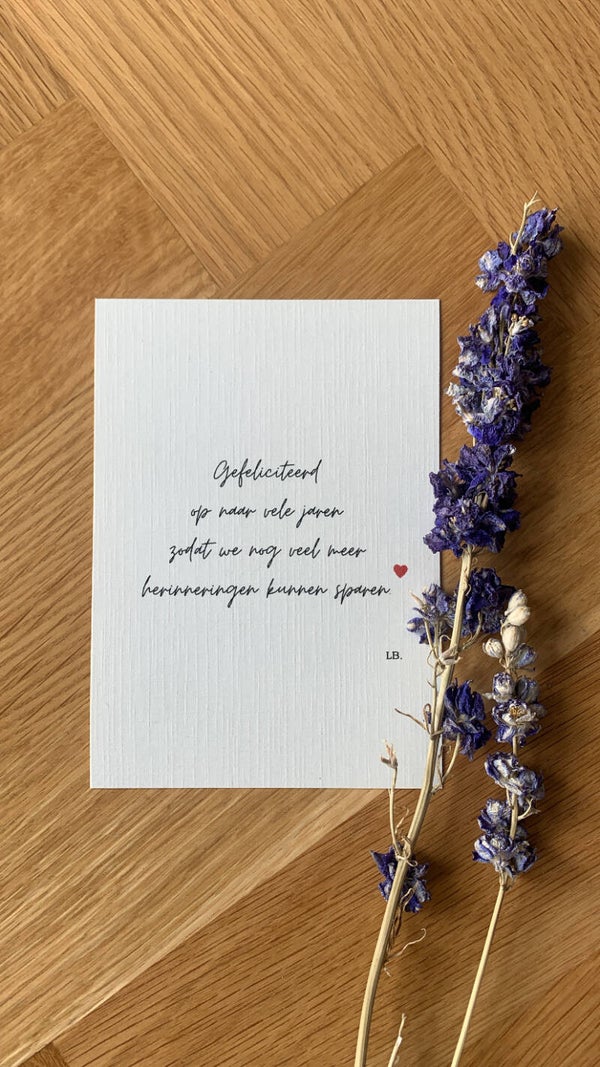 Gefeliciteerd
op naar vele jaren
zodat we nog veel meer
herinneringen kunnen sparen
LB.